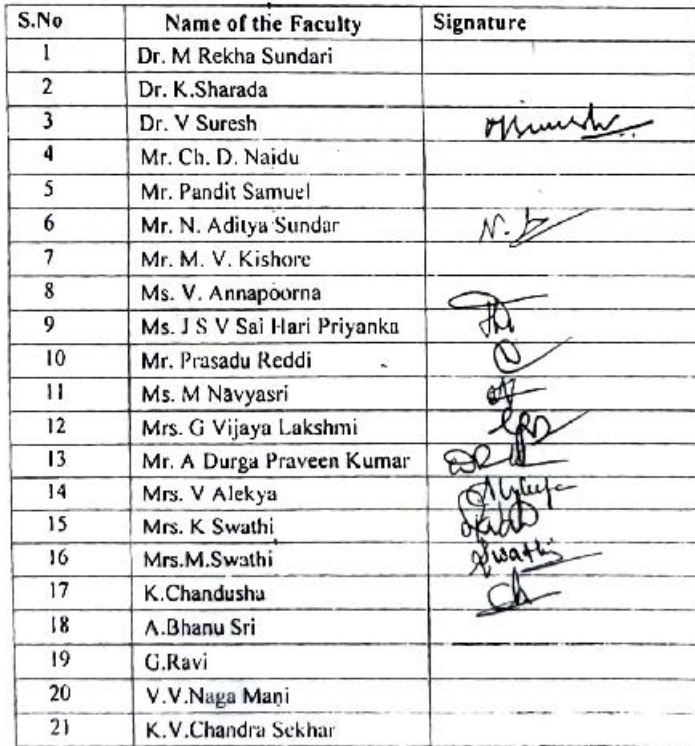 S.No Name of the Faculty Signature
1 Dr. M Rekha Sundari
2 Dr. K.Sharada
3 Dr. V Suresh
4 Mr. Ch. D. Naidu
5 Mr. Pandit Samuel
6 Mr. N. Aditya Sundar N.
7 Mr. M. V. Kishore
8 Ms. V. Annapoorna
9 Ms. J S V Sai Hari Priyanka
10 Mr. Prasadu Reddi
11 Ms. M Navyasri
12 Mrs. G Vijaya Lakshmi
13 Mr. A Durga Praveen Kumar
14 Mrs. V Alekya
15 Mrs. K Swathi
16 Mrs.M.Swathi Swathi
17 K.Chandusha Ch
18 A.Bhanu Sri
19 G.Ravi
20 V.V.Naga Mani
21 K.V.Chandra Sekhar